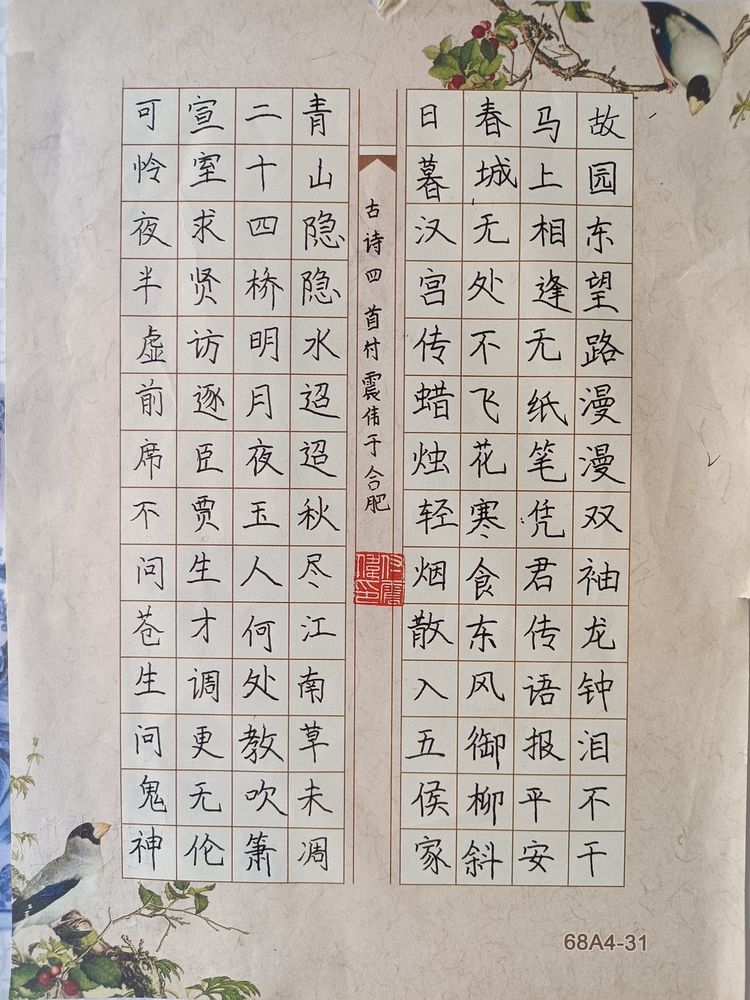 故园东望路漫漫双袖龙钟泪不干
马上相逢无纸笔凭君传语报平安
春城无处不飞花寒食东风御柳斜
日暮汉宫传蜡烛轻烟散入五侯家
古诗四首付震伟于合肥
付震偉印
青山隐隐水迢迢秋尽江南草未凋
二十四桥明月夜玉人何处教吹箫
宣室求贤访逐臣贾生才调更无伦
可怜夜半虚前席不问苍生问鬼神
68A4-31